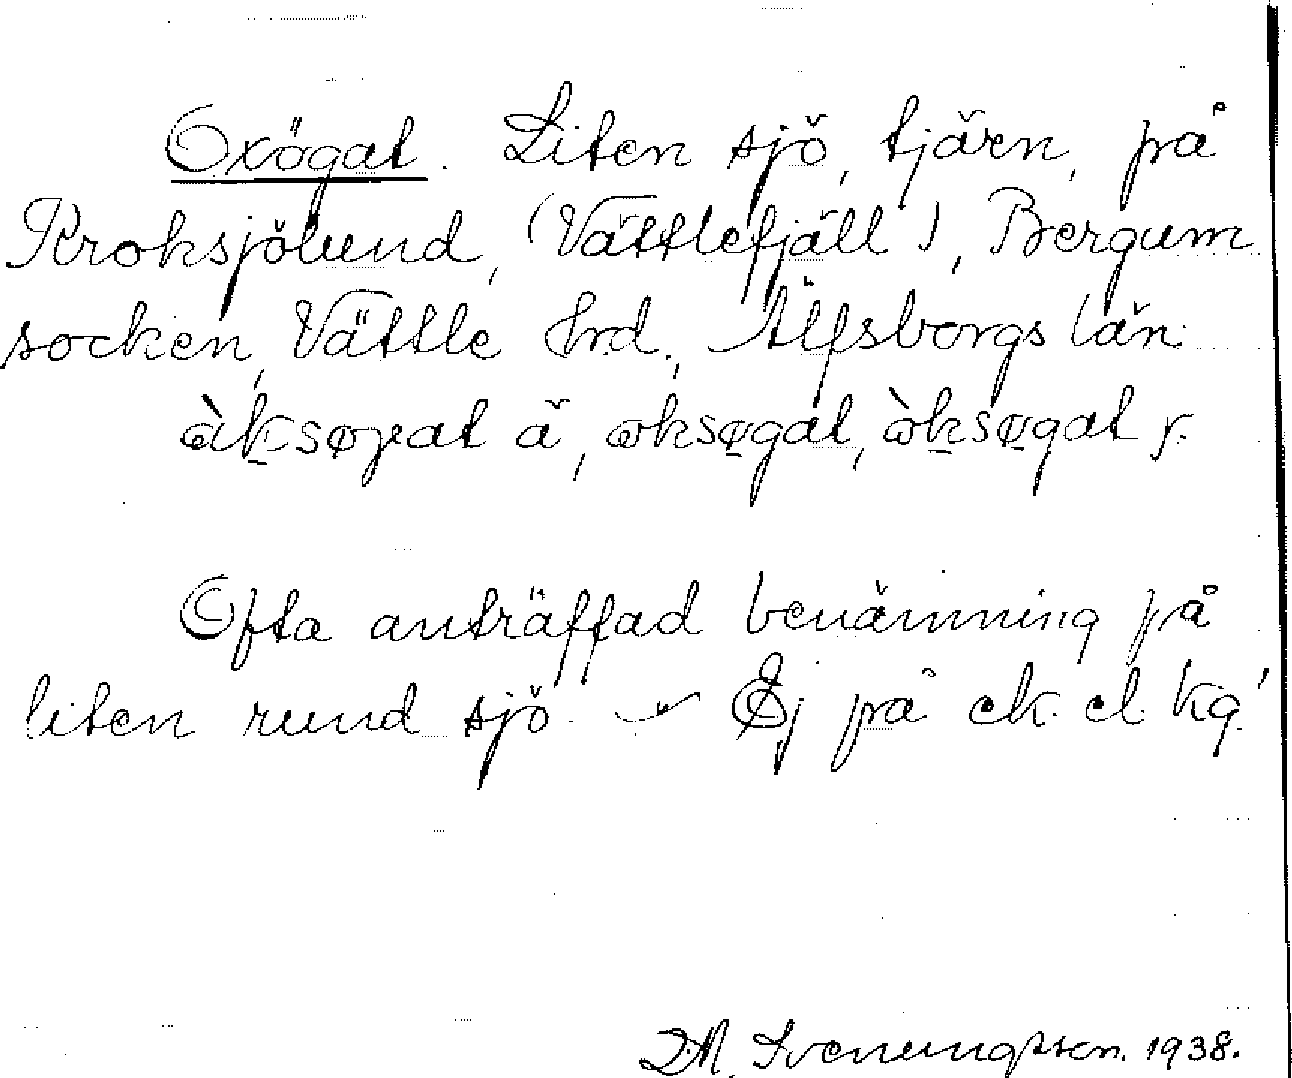 Oxögat. Liten sjö, tjärn, på
Kroksjölund, (Vättlefjäll), Bergum
socken, Vättle Hrd., Älfsborgs län.
àksøgat ä, ɷksøgat, ɷ̀ksøgat y.
Ofta anträffad benämning på
liten rund sjö. Ej på ek. el. kg!
Svenungsson. 1938.